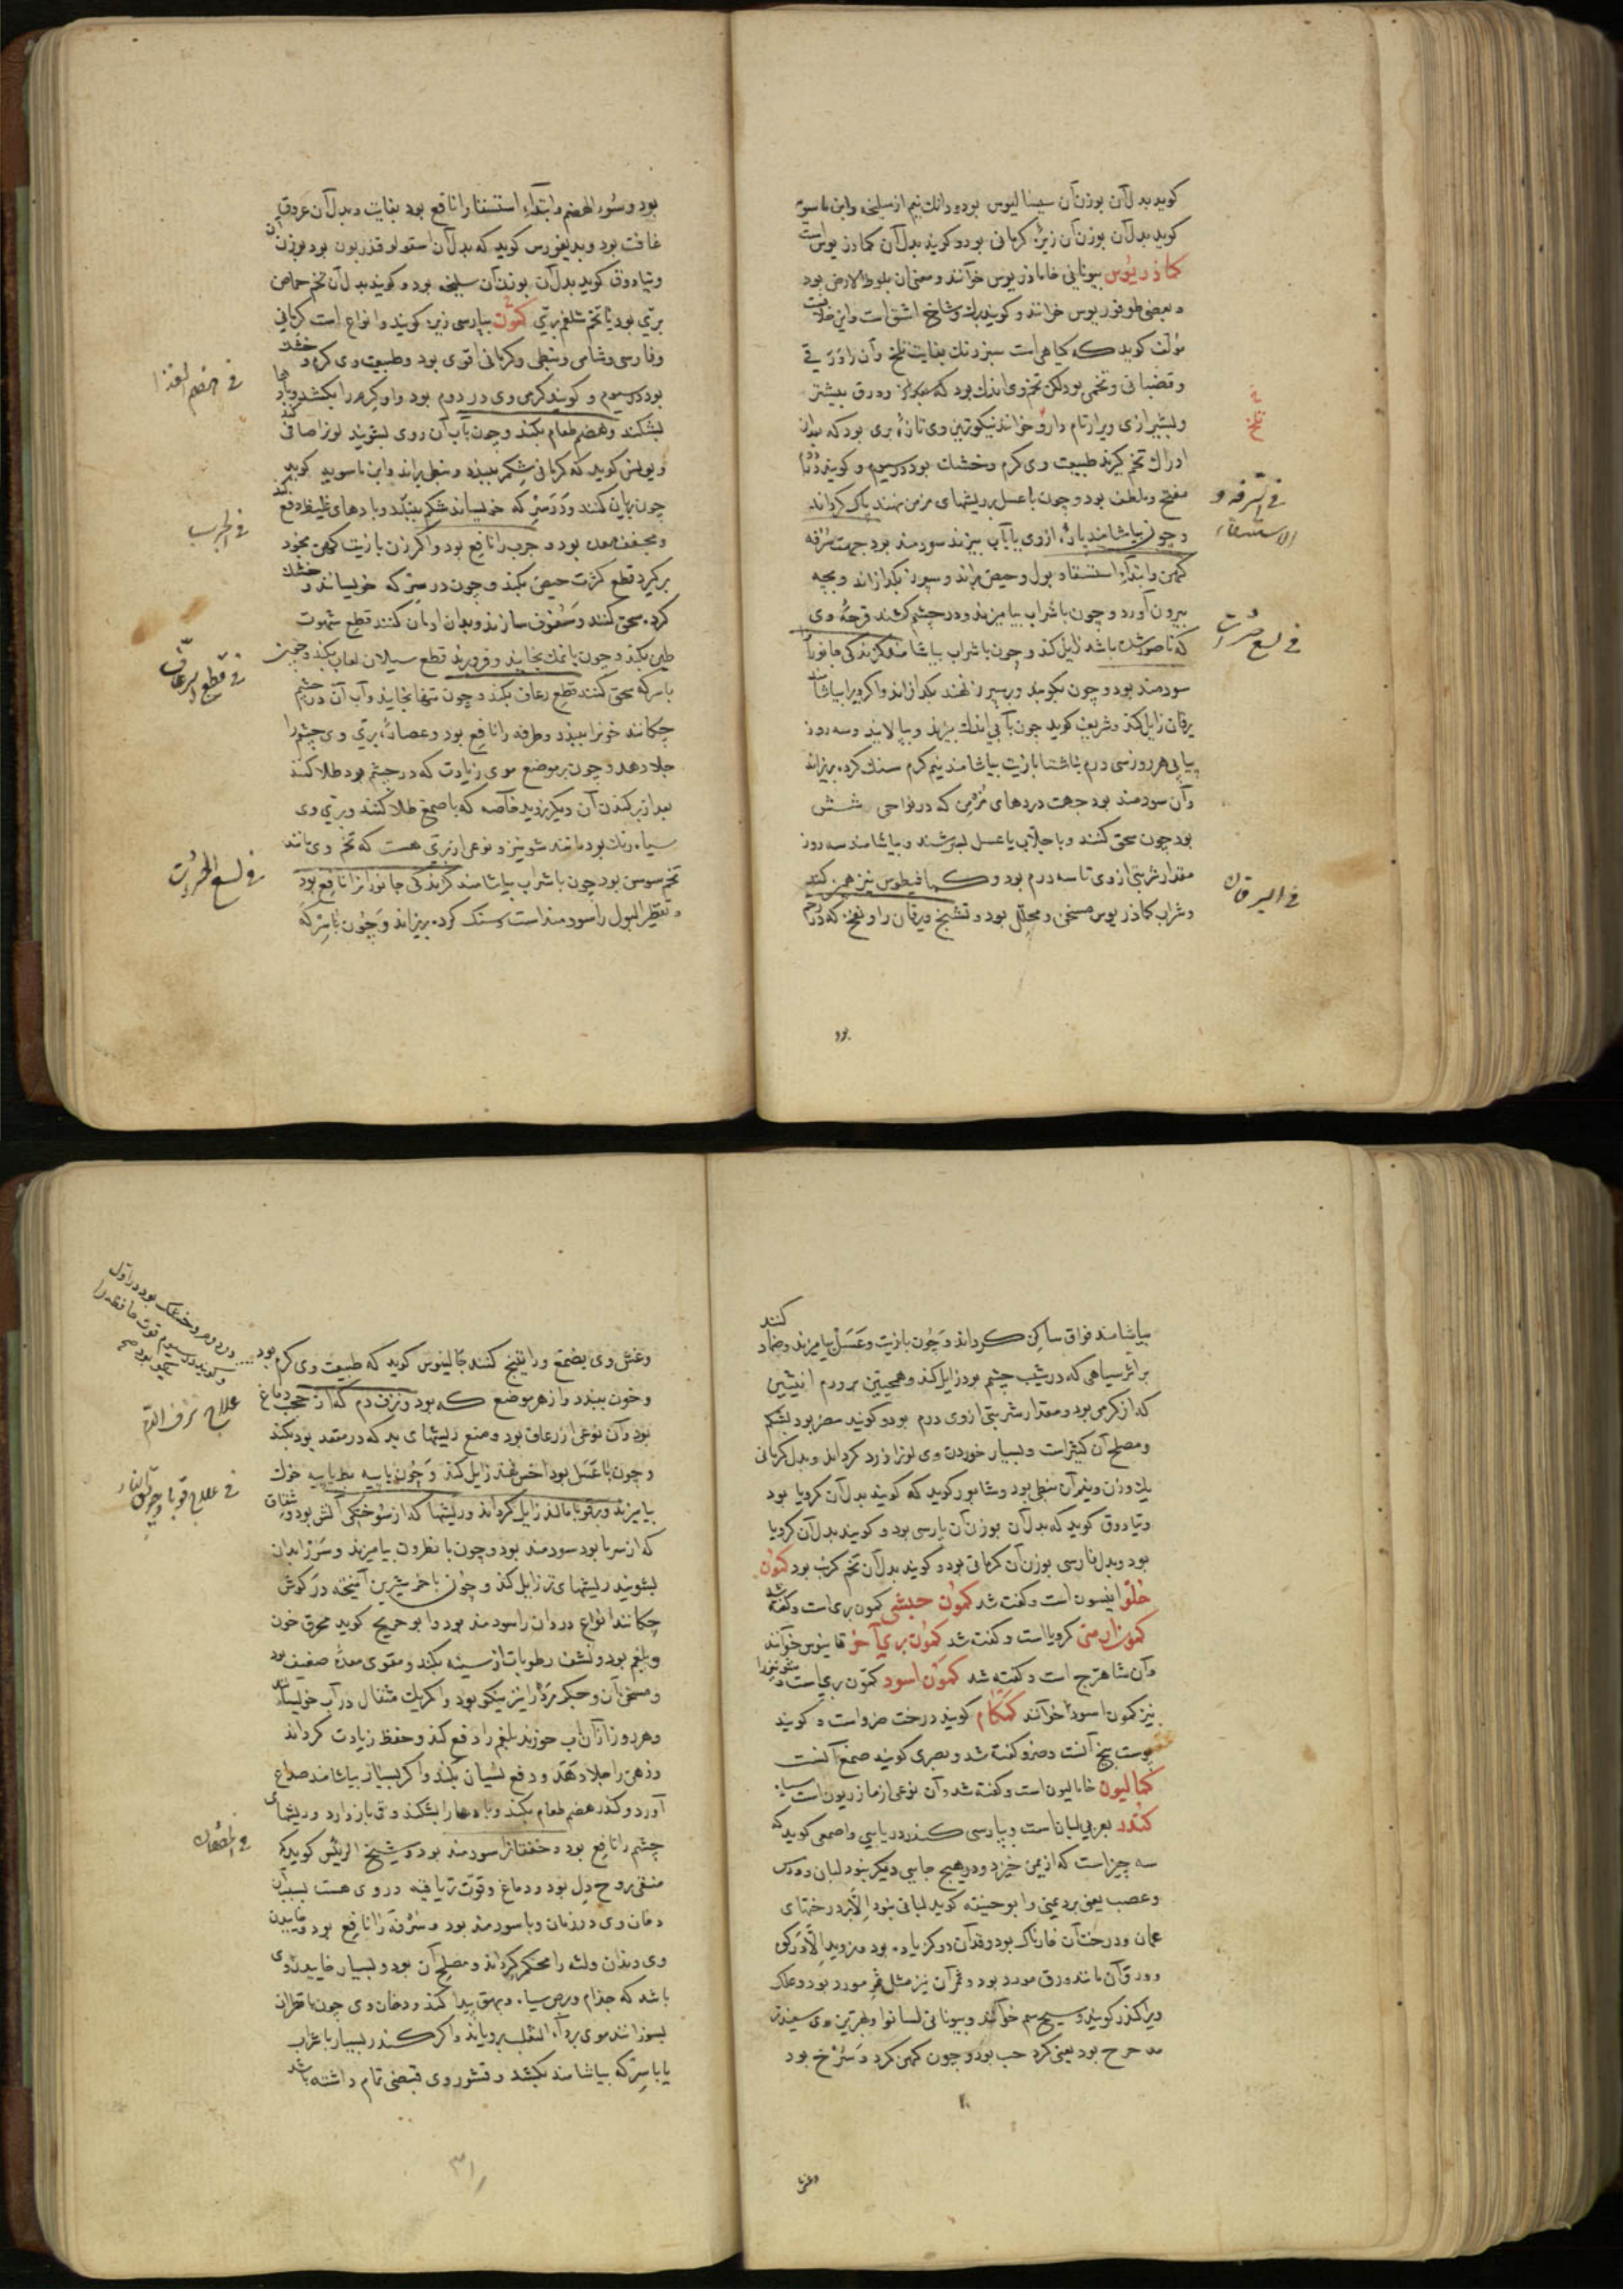 کوید بدل آن بوزن آن سیسالیوس بود و دانک نیم از سلیخه وابن ماسویه
کوید بدل آن بوزن آن زیرۀ کرمانی بود و کویند بدل آن کمادریوس است
کماذریوس بیونانی خاماذریوس خوانند و معنی آن بلوط الارض بود
و بعضی طوقوریوس خوانند و کویند بیخ اشق است و این خلافست
مؤلف کوید که کیاهی است سبز رنک بغایت تلخ و آن را ورقی
و قضبانی و تخمی بود لکن تخم وی اندک بود و ورق بیشتر
و بشیرازی ویرا تلخ دارو خوانند نیکوترین وی تازۀ بری بود که بدان
ادراک تخم کیرند طبیعت وی کرم و خشک بود در سیوم و کویند در دوم
مفتح و ملطف بود و چون با عسل بر ریشهای مزمن نهند پاک کرداند
و چون بیاشامند تازۀ ازوی یا بآب بپزند سودمند بود جهت سرفه
کهن و ابتداء استسقا و بول و حیض براند و سپرز بکدازاند و بچه
بیرون آورد و چون با شراب بیامیزند و در چشم کشند قرحۀ وی
که ناصور شده باشد زایل کند و چون با شراب بیاشامند کزندکی جانورانرا
سودمند بود و چون بکوبند و بر سپرز نهند بکدازاند و اکر ویرا بیاشامند
یرقان زایل کند و شریف کوید چون بآبی اندک بپزند و بپالایند و سه روز
پیاپی هر روز سی درم ناشتا با زیت بیاشامند نیم کرم سنک کرده بریزاند
و آن سودمند بود جهت دردهای مزمن که در نواحی شش
بود چون سحق کنند و با جلاب یا عسل بسرشند و بیاشامند سه روز
مقدار شربتی ازوی تا سه درم بود و کمافیطوس نیز همین کند
و شراب کماذریوس مسخن و محلل بود و تشنج و یرقان را و نفخی که در رحم
تلخ
فی السرفه و
الاستسقاء
فی لسع حشرات
فی الیرقان
بود
بود و سوء الهضم و ابتداء استسقا را نافع بود بغایت و بدل آن عروق
غافت بود و بدیغورس کوید که بدل آن اسقولوقندریون بود بوزن آن
و تیادوق کوید بدل آن بوزن آن سلیخه بود و کویند بدل آن تخم حماض
بری بود یا تخم شلغم بری کمون بپارسی زیره کویند و انواع است کرمانی
و فارسی و شامی و نبطی و کرمانی اقوی بود و طبیعت وی کرم و خشک
بود در سیوم و کویند کرمی وی در دوم بود و او کرم را بکشد و بادها
بشکند و هضم طعام بکند و چون بآب آن روی بشویند لون صافی کند
و یولس کوید که کرمانی شکم ببندد و نبطی براند و ابن ماسویه کوید
چون بریان کنند و در سرکه خیسانند شکم ببندد و بادهای غلیظ دفع کند
و مجفف معده بود و جرب را نافع بود و اکر زن با زیت کهن بخود
برکیرد قطع کثرت حیض بکند و چون در سرکه خیسانند و خشک
کرده سحق کنند و سفوف سازند و بدان ادمان کنند قطع شهوت
طین بکند و چون با نمک بخایند و فرو برند قطع سیلان لعاب بکند و چون
با سرکه سحق کنند قطع رعاف بکند و چون تنها بخایند و آب آن در چشم
چکانند خونرا ببندد و طرفه را نافع بود و عصارۀ بری وی چشم را
جلا دهد و چون بر موضع موی زیادت که در چشم بود طلا کنند
بعد از برکندن آن دیکر نروید خاصه که با صمغ طلا کنند و بری وی
سیاه رنک بود مانند شونیز و نوعی از بری هست که تخم وی مانند
تخم سوسن بود چون با شراب بیاشامند کزندکی جانورانرا نافع بود
و تقطیر البول را سودمند است و سنک کرده بریزاند و چون با سرکه
فی هضم الغذا
فی الجرب
فی قطع الرعاف
فی لسع الحشرات
بیاشامند فواق ساکن کرداند و چون با زیت و عسل بیامیزند و ضماد کنند
بر اثر سیاهی که در شیب چشم بود زایل کند و همچنین بر ورم انثیین
که از کرمی بود و مقدار شربتی ازوی درم بود و کویند مضر بود بشکم
و مصلح آن کثیراست و بسیار خوردن وی لونرا زرد کرداند و بدل کرمانی
یک وزن و نیم آن نبطی بود و شابور کوید که کویند بدل آن کرویا بود
و تیادوق کوید که بدل آن بوزن آن پارسی بود و کویند بدل آن کرویا
بود و بدل فارسی بوزن آن کرمانی بود و کویند بدل آن تخم کرنب بود کمون
حلو انیسون است و کفته شد کمون حبشی کمون بری است و کفته شد
کمون ارمنی کرویا است و کفته شد کمون بری آخر قامینوس خوانند
و آن شاهترج است و کفته شد کمون اسود کمون بری است و شونیزرا
نیز کمون اسود خوانند کمکام کویند درخت ضرو است و کویند
پوست بیخ آنست و ضرو کفته شد و بصری کوید صمغ آنست
کمالیون خامالیون است و کفته شد و آن نوعی از مازریون است سیاه
کندر بعربی لبان است و بپارسی کندر دریایی و اصمعی کوید که
سه چیز است که از یمن خیزد و در هیچ جایی دیکر نبود لبان و ورس
و عصب یعنی برد یمنی و ابوحنیفه کوید لبان نبود الا در درختهای
عمان و درخت آن خارناک بود و قد آن دو کز یاده بود و نروید الا در کوه
و ورق آن مانند ورق مورد بود و ثمر آن نیز مثل ثمر مورد بود و علک
ویرا کندر کویند و بیونانی لسانوا و بهترین وی سفید
مدحرج بود یعنی کرد حب بود و چون کهن کرد و سرخ بود
وغش
وغش وی بصمغ و راتینج کنند جالینوس کوید که طبیعت وی کرم بود
و خون ببندد و از هر موضع که بود و نزف دم که از حجب دماغ
بود و آن نوعی از رعاف بود و منع ریشهای بد که در مقعد بود بکند
و چون با عسل بود داخس نهند زایل کند و چون با پیه بط یا پیه خوک
بیامیزند و بر قوبا مالند زایل کرداند و ریشها که از سوختکی آتش بود و شقاق
که از سرما بود سودمند بود و چون با نطرون بیامیزند و سر را بدان
بشویند ریشهای تر زایل کند و چون با خمر شیرین آمیخته در کوش
چکانند انواع درد آن را سودمند بود و ابو جریج کوید محرق خون
و بلغم بود و نشف رطوبات از سینه بکند و مقوی معدۀ ضعیف بود
و مسخن آن و جکر سرد را نیز نیکو بود و اکر یک مثقال در آب خیسانند
و هر روز از آن آب خورند بلغم را دفع کند و حفظ زیادت کرداند
و ذهن را جلا دهد و دفع نسیان بکند و اکر بسیار بیاشامند صداع
آورد و کندر هضم طعام بکند و بادها را بشکند و قی باز دارد و ریشهای
چشم را نافع بود و خفقانرا سودمند بود و شیخ الرئیس کوید که
منقی روح دل بود و دماغ و قوت تریاقیه در وی هست بسبب آن
دخان وی در زمان وبا سودمند بود و سرفه را نافع بود و خاییدن
وی دندان و لثه را محکم کرداند و مصلح آن بود و بسیار خاییدن وی
باشد که جذام و برص سیاه و بهق پیدا کند و دخان وی چون با قطران
بسوزانند موی بر داء الثعلب برویاند و اکر کندر بسیار با شراب
یا با سرکه بیاشامند بکشد و قشور وی قبضی تمام داشته باشد
در دوم و خشک بود در اول
و کویند در سیوم قوت حافظه را
نیکو بود صح
علاج نزف الدم
فی علاج قوبا و حرق النار
فی الخفقان
۳۱